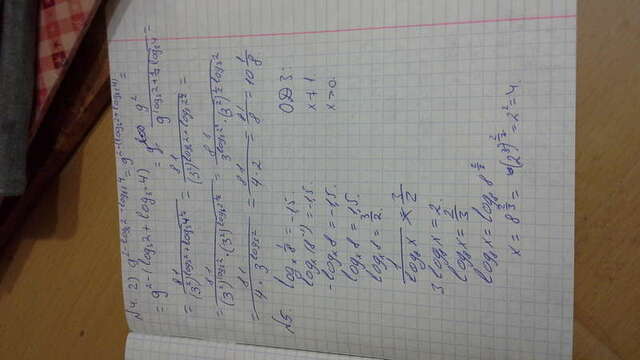 №4. 2) 9^{2-log₃2-log₉4} = 9^{2-(log₃2+log₉4)} =
= 9^{2-(log₃2+log₉4)} = 9² / 9^{log₃2+½log₃4} =
= 81 / (3²)^{log₃2+log₃4^{½}} = 81 / (3²)^{log₃2+log₃2} =
= 81 / (3²)^{log₃2}·(3²)^{log₃2} = 81 / 3^{log₃2²}·(3²)^{½log₃2} =
= 81 / 4·3^{log₃2} = 81 / 4·2 = 81/8 = 10 1/8.
№5. logₓ 1/8 = -1,5. ОДЗ:
logₓ(8⁻¹) = -1,5. x ≠ 1
-logₓ8 = -1,5. x>0.
logₓ8 = 1,5.
logₓ8 = 3/2.
1/log₈x = 3/2
3log₈x = 2.
log₈x = 2/3
log₈x = log₈8^{2/3}
x = 8^{2/3} = (2³)^{2/3} = 2² = 4.